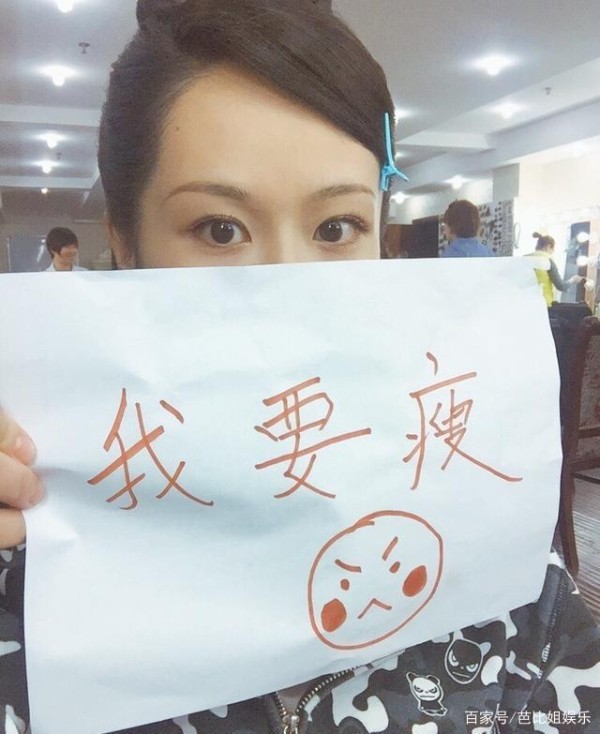 我要瘦
百家号/芭比姐娱乐